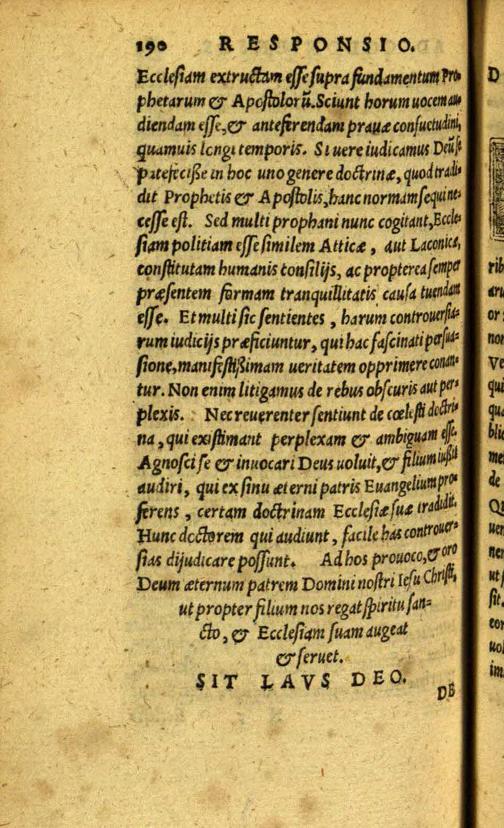 190 RESPONSIO.
Ecclesiam extructam esse supra fundamentum Pro-
phetarum & Apostolorũ. Sciunt horum uocem au-
diendam esse, & anteferendam prauæ consuetudini,
quamuis longi temporis. Si uere iudicamus Deũ se
patefecisse in hoc uno genere doctrinæ, quod tradi-
dit Prophetis & Apostolis, hanc normam sequi ne-
cesse est. Sed multi prophani nunc cogitant, Eccle-
siam politiam esse similem Atticæ, aut Laconicæ,
constitutam humanis consilijs, ac propterea semper
præsentem formam tranquillitatis causa tuendam
esse. Et multi sic sentientes, harum controuersia-
rum iudicijs præficiuntur, qui hac fascinati persua-
sione, manifestißimam ueritatem opprimere conan-
tur. Non enim litigamus de rebus obscuris aut per-
plexis. Nec reuerenter sentiunt de cœlesti doctri-
na, qui existimant perplexam & ambiguam esse.
Agnosci se & inuocari Deus uoluit, & filium iußit
audiri, qui ex sinu æterni patris Euangelium pro-
ferens, certam doctrinam Ecclesiæ suæ tradidit.
Hunc doctorem qui audiunt, facile has controuer-
sias dijudicare possunt. Ad hos prouoco, & oro
Deum æternum patrem Domini nostri Iesu Christi,
ut propter filium nos regat spiritu san-
cto, & Ecclesiam suam augeat
& seruet.
SIT LAVS DEO.
DE